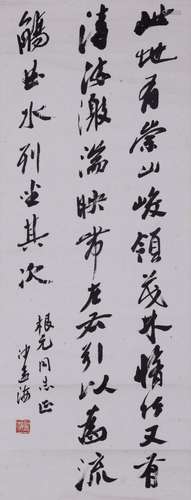 此地有崇山峻領茂林脩竹又有
清流激湍映帶左右引以為流
觴曲水列坐其次
根元同志正
沙孟海